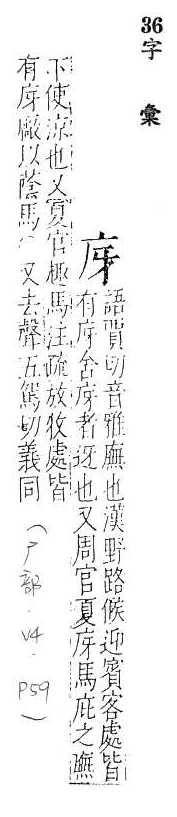 36
字彙
庌
語賈切音雅廡也漢野路候迎賓客處皆
有庌舍庌者迓也又周官夏庌馬庇之廡
下使涼也又夏官趣馬注疏放牧處皆
有庌廠以蔭馬又去聲五駕切義同
(广部．V4．P59)